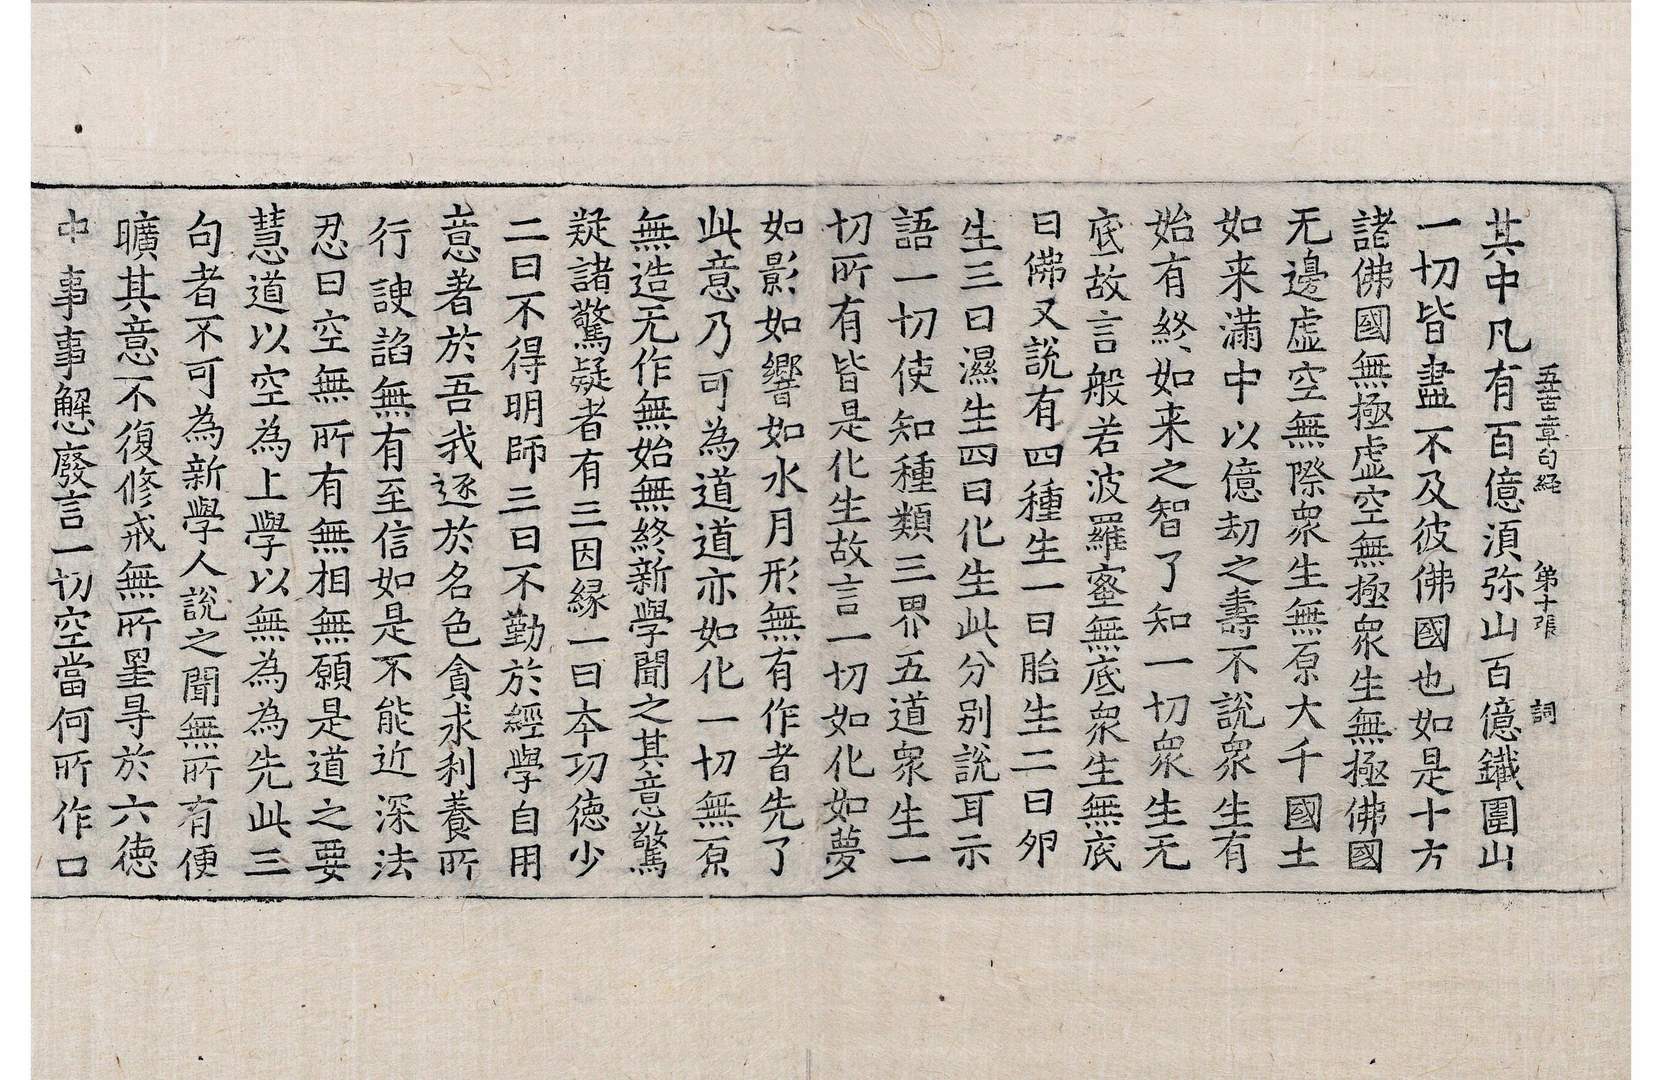 五苦章句経 第十張 詞
其中凡有百億湏弥山百億鐵圍山
一切皆盡不及彼佛國也如是十方
諸佛國無極虚空無極衆生無極佛國
无邊虚空無際衆生無原大千國土
如来滿中以億劫之壽不說衆生有
始有終如来之智了知一切衆生无
底故言般若波羅蜜無底衆生無底
曰佛又說有四種生一曰胎生二曰卵
生三曰濕生四曰化生此分别說耳示
語一切使知種類三界五道衆生一
切所有皆是化生故言一切如化如夢
如影如響如水月形無有作者先了
此意乃可為道道亦如化一切無原
無造无作無始無終新學聞之其意驚
疑諸驚疑者有三因縁一曰本功德少
二曰不得明師三曰不勤於經學自用
意著於吾我逐於名色貪求利養所
行諛諂無有至信如是不能近深法
忍曰空無所有無相無願是道之要
慧道以空為上學以無為為先此三
句者不可為新學人說之聞無所有便
曠其意不復修戒無所星㝵於六德
中事事懈廢言一切空當何所作口